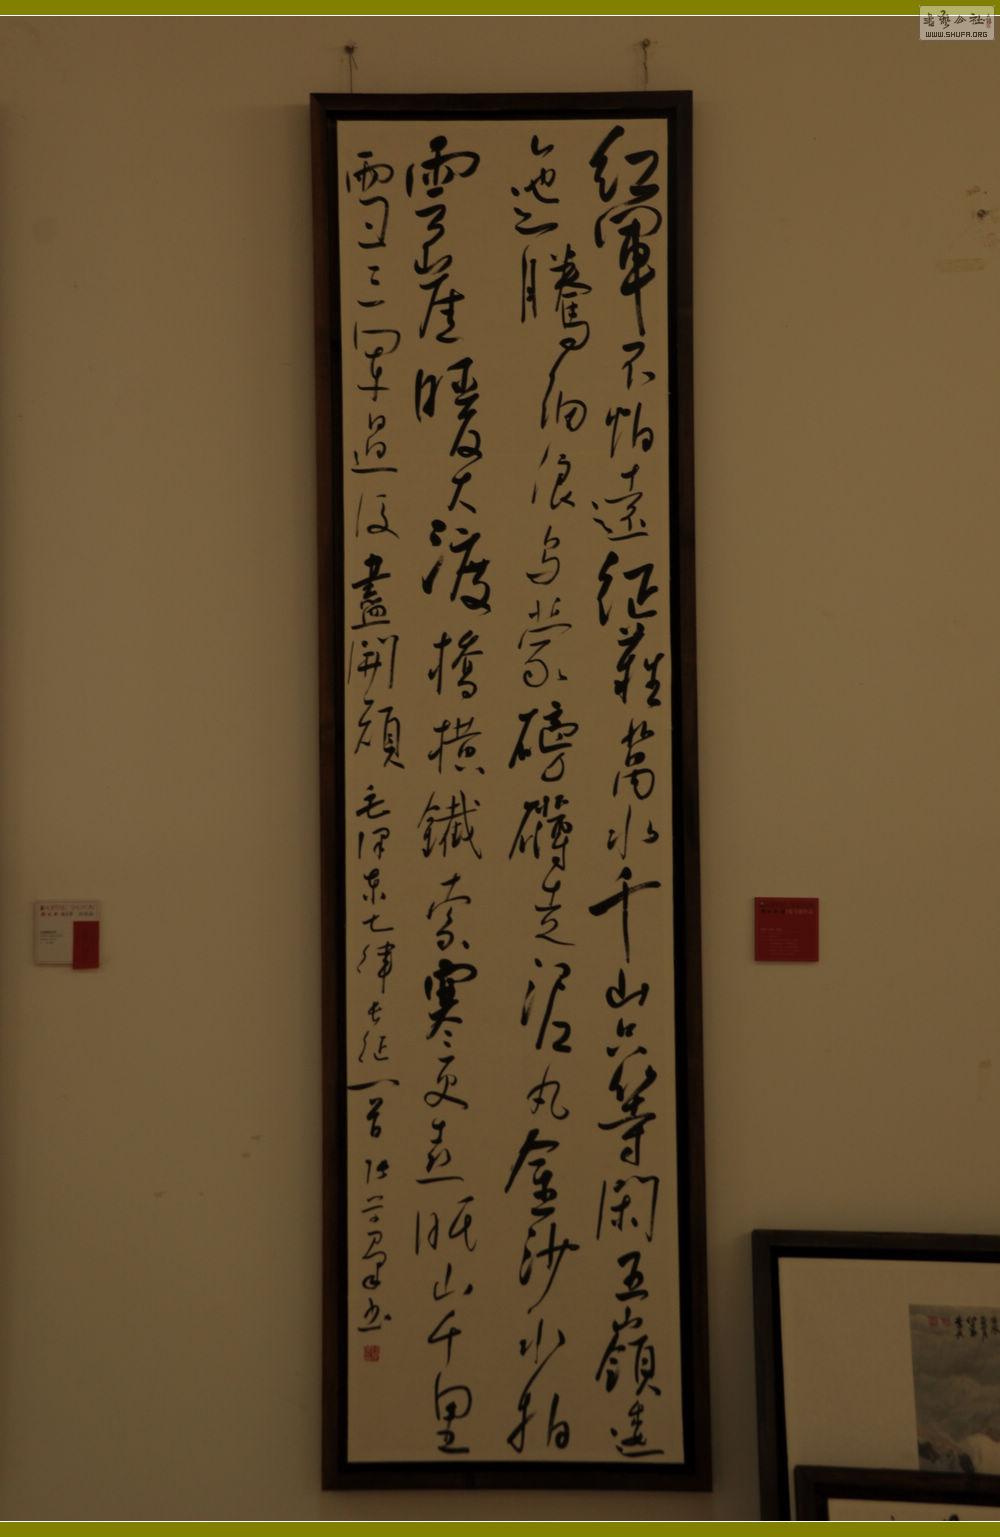 紅軍不怕遠征難萬水千山只等閑五嶺逶
迤騰細浪烏蒙磅礴走泥丸金沙水拍
雲崖暖大渡橋橫鐵索寒更喜岷山千里
雪三軍過後盡開顏 毛澤東七律長征一首 書
WWW.SHUFA.ORG